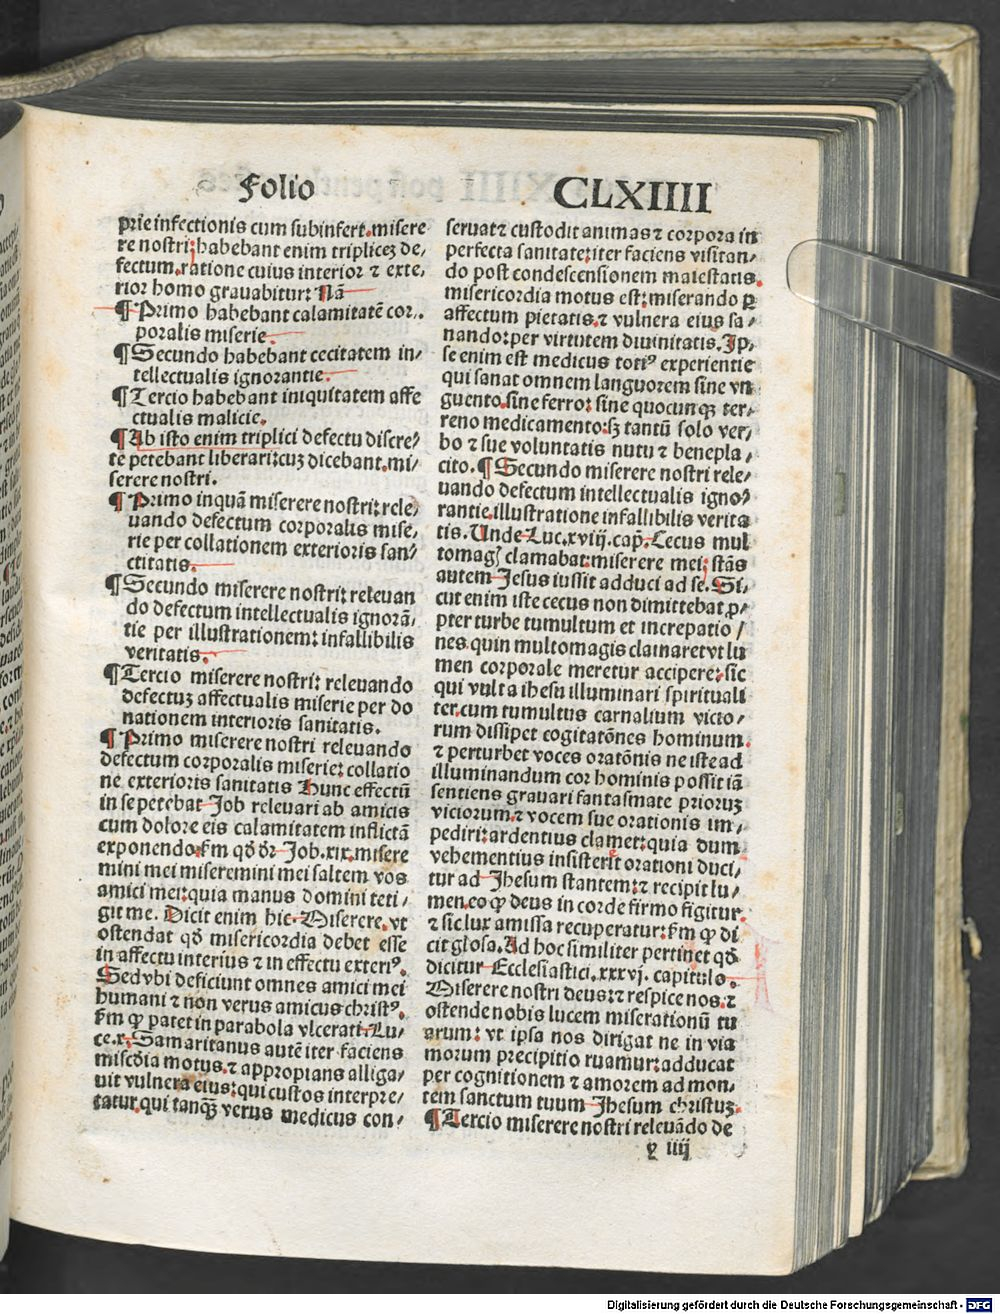 Folio CLXIIII
prie infectionis cum subinfert.misere
re nostri:habebant enim triplicez de⸗
fectum.ratione cuius interior ⁊ exte⸗
rior homo grauabitur: Nā
¶ Primo habebant calamitatē cor⸗
poralis miserie.
¶ Secundo habebant cecitatem in⸗
tellectualis ignorantie.
¶ Tercio habebant iniquitatem affe
ctualis malicie.
¶ Ab isto enim triplici defectu discre⸗
te petebant liberari:cuz dicebant.mi⸗
serere nostri.
¶ Primo inquā miserere nostri: rele⸗
uando defectum corporalis mise⸗
rie per collationem exterioris san⸗
ctitatis.
¶ Secundo miserere nostri: releuan
do defectum intellectualis ignorā⸗
tie per illustrationem: infallibilis
veritatis.
¶ Tercio miserere nostri: releuando
defectuz affectualis miserie per do
nationem interioris sanitatis.
¶ Primo miserere nostri releuando
defectum corporalis miserie: collatio
ne exterioris sanitatis Hunc effectū
in se petebat Job releuari ab amicis
cum dolore eis calamitatem inflictā
exponendo.fm qd̄ dr̄ Job.xix.misere
mini mei miseremini mei saltem vos
amici mei:quia manus domini teti⸗
git me. Dicit enim hic. Miserere.vt
ostendat qd̄ misericordia debet esse
in affectu interius ⁊ in effectu exteriꝰ.
Sed vbi deficiunt omnes amici mei
humani ⁊ non verus amicus christꝰ.
fm ꝙ patet in parabola vlcerati. Lu⸗
ce.x. Samaritanus autē iter faciens
miscdia motus.⁊ appropians alliga⸗
uit vulnera eius:qui custos interpre⸗
tatur.qui tanꝙ̄ verus medicus con⸗
seruat ⁊ custodit animas ⁊ corpora in
perfecta sanitate:iter faciens visitan⸗
do post condescensionem maiestatis.
misericordia motus est:miserando ꝑ
affectum pietatis.⁊ vulnera eius sa⸗
nando:per virtutem diuinitatis. Ip⸗
se enim est medicus totiꝰ experientie
qui sanat omnem languorem sine vn
guento.sine ferro: sine quocunqꝫ ter⸗
reno medicamento:sꝫ tantū solo ver⸗
bo ⁊ sue voluntatis nutu ⁊ benepla⸗
cito. ¶ Secundo miserere nostri rele⸗
uando defectum intellectualis igno⸗
rantie.illustratione infallibilis verita
tis. Unde Luc.xviij.cap. Cecus mul
tomagꝭ clamabat:miserere mei: stās
autem Jesus iussit adduci ad se. Si⸗
cut enim iste cecus non dimittebat ꝓ⸗
pter turbe tumultum et increpatio⸗
nes.quin multomagis clamaret vt lu
men corporale meretur accipere: sic
qui vult a ihesu illuminari spirituali
ter.cum tumultus carnalium vicio⸗
rum dissipet cogitatōnes hominum.
⁊ perturbet voces oratōnis ne iste ad
illuminandum cor hominis possit iā
sentiens grauari fantasmate prioruz
viciorum.⁊ vocem sue orationis im⸗
pediri:ardentius clamet:quia dum
vehementius insisterit orationi duci⸗
tur ad Jhesum stantem:⁊ recipit lu⸗
men.eo ꝙ deus in corde firmo figitur.
⁊ sic lux amissa recuperatur: fm ꝙ di
cit glosa. Ad hoc similiter pertinet qd̄
dicitur Ecclesiastici.xxxvj. capitulo.
Miserere nostri deus: ⁊ respice nos.⁊
ostende nobis lucem miserationū tu
arum: vt ipsa nos dirigat ne in via
morum precipitio ruamur: adducat
per cognitionem ⁊ amorem ad mon⸗
tem sanctum tuum Jhesum christuz.
¶ Tercio miserere nostri releuādo de
y iiij
Digitalisierung gefördert durch die Deutsche Forschungsgemeinschaft - DFG